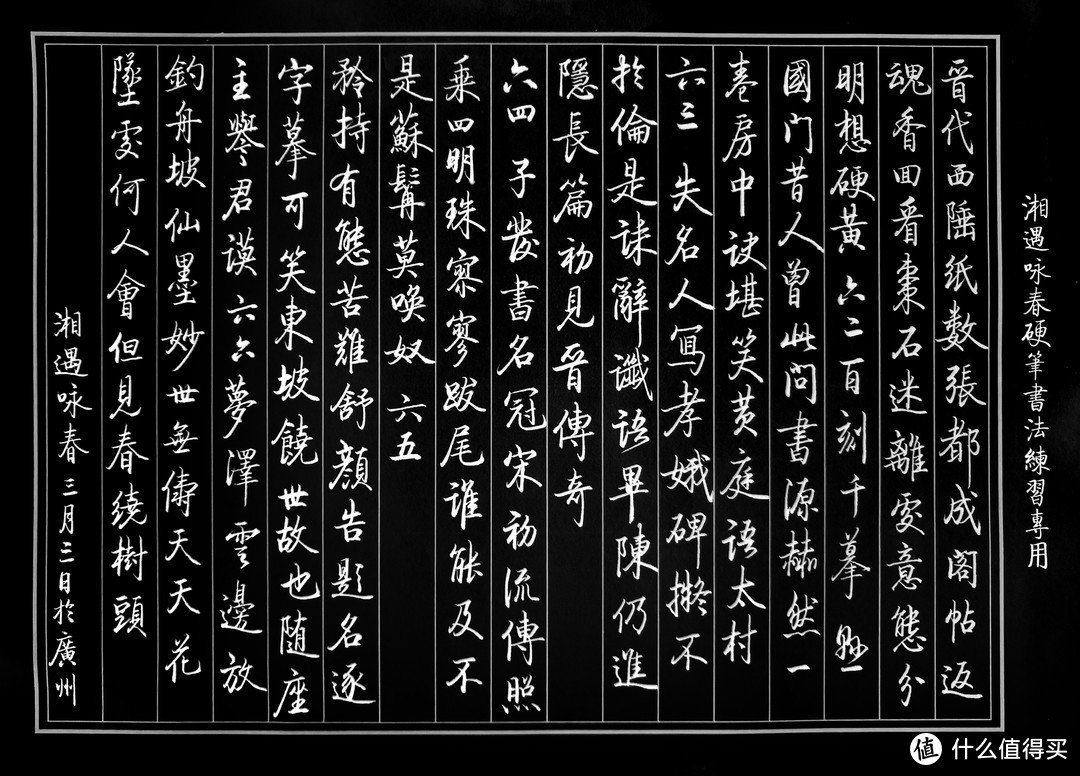 晉代西陲纸数張都成阁帖返
魂香回看棗石迷離處意態分
明想硬黃 六二百刻千摹
國門昔人曾此問書源赫然一
卷房中诀堪笑黄庭语太村
六三 失名人寫孝娥碑擬不
於倫是誄辭讖语畢陳仍進
隱長篇初見晉傳奇
六四 子發書名冠宋初流傳照
乘四明珠寥寥跋尾谁能及不
是蘇髯莫喚奴 六五
矜持有態苦難舒顏告題名逐
字摹可笑東坡饒世故也随座
主譽君谟 六六夢澤雲邊放
釣舟坡仙墨妙世無儔天天花
墜處何人會但見春繞樹頭
湘遇咏春三月三日於廣州
湘遇咏春硬筆書法練習專用
值 什么值得买